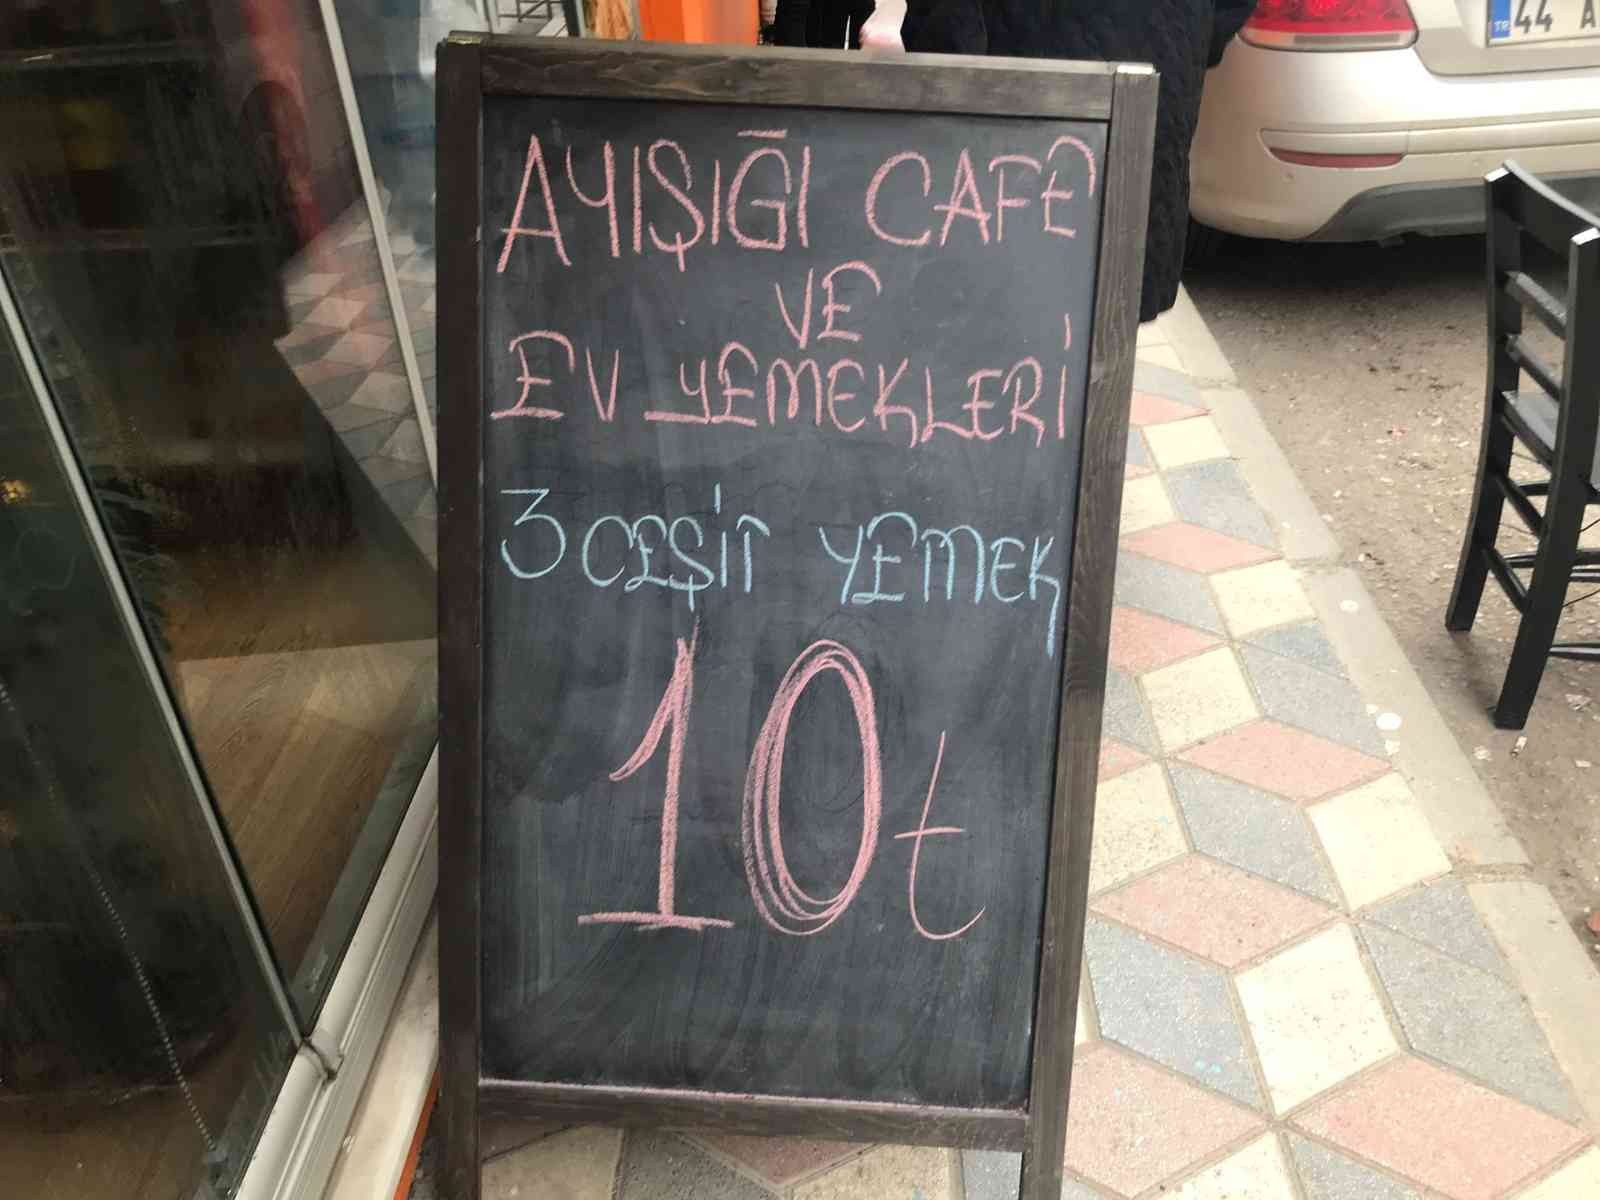 AYIŞIĞI CAFE
VE
EV YEMEKLERİ
3 CEŞİT YEMEK
10 t
TR 44 A